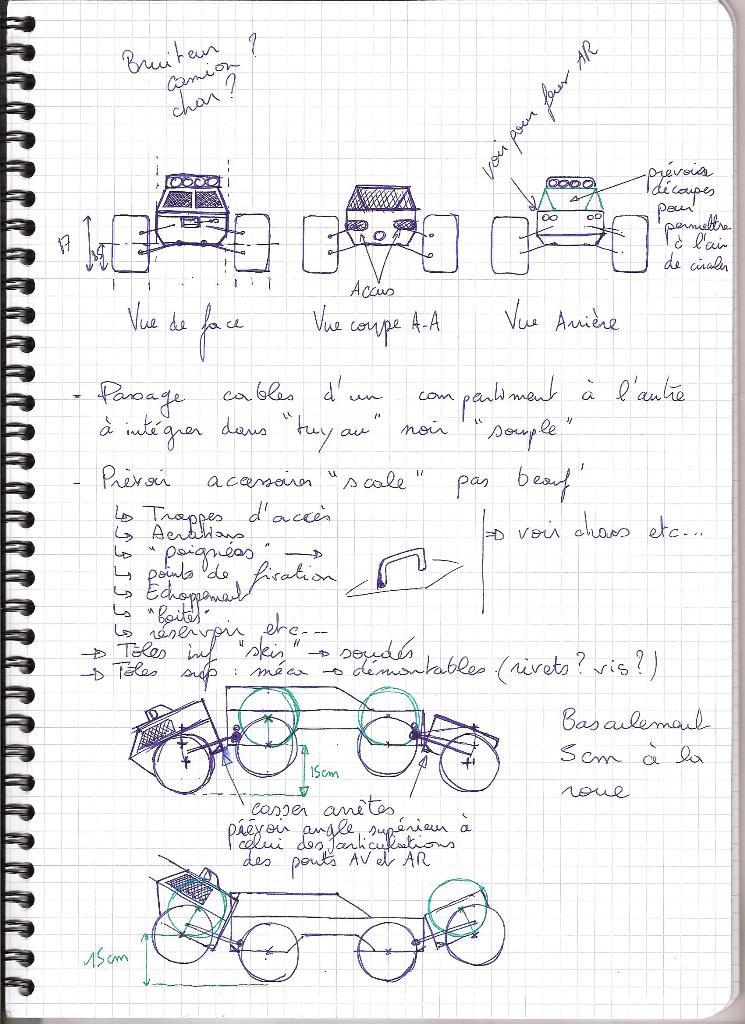 Bruiteur ?
camion
char ?
voir pour feux AR
prévoir
découpes
pour
permettre
à l'air
de circuler
17
Accus
Vue de face
Vue coupe A-A
Vue Arrière
- Passage cables d'un compartiment à l'autre
à intégrer dans "tuyau" noir "souple"
- Prévoir accessoires "scale" pas beauf'
↳ Trappes d'accès
↳ Aerations
↳ "poignées" →
↳ points de fixation
↳ Echappement
↳ "boites"
↳ réservoir etc...
⇒ voir chars etc...
→ Tôles inf "skis" → soudés
→ Tôles sup : méca → démontables (rivets ? vis ?)
15cm
Basculement
5cm à la
roue
casser arrêtes
prévoir angle supérieur à
celui des articulations
des ponts AV et AR
15cm